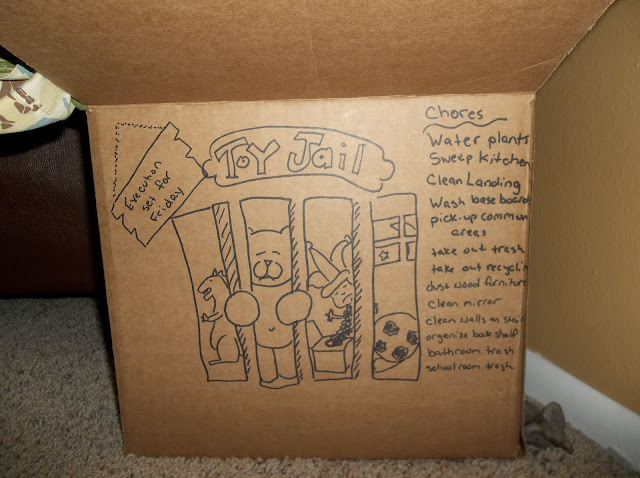 Execution
set for
Friday
Toy Jail
Chores
Water plants
Sweep Kitchen
Clean Landing
Wash base board
pick-up common
areas
take out trash
take out recyclin
dust wood furniture
clean mirror
clean walls on stair
organize book shelf
bathroom trash
school room trash